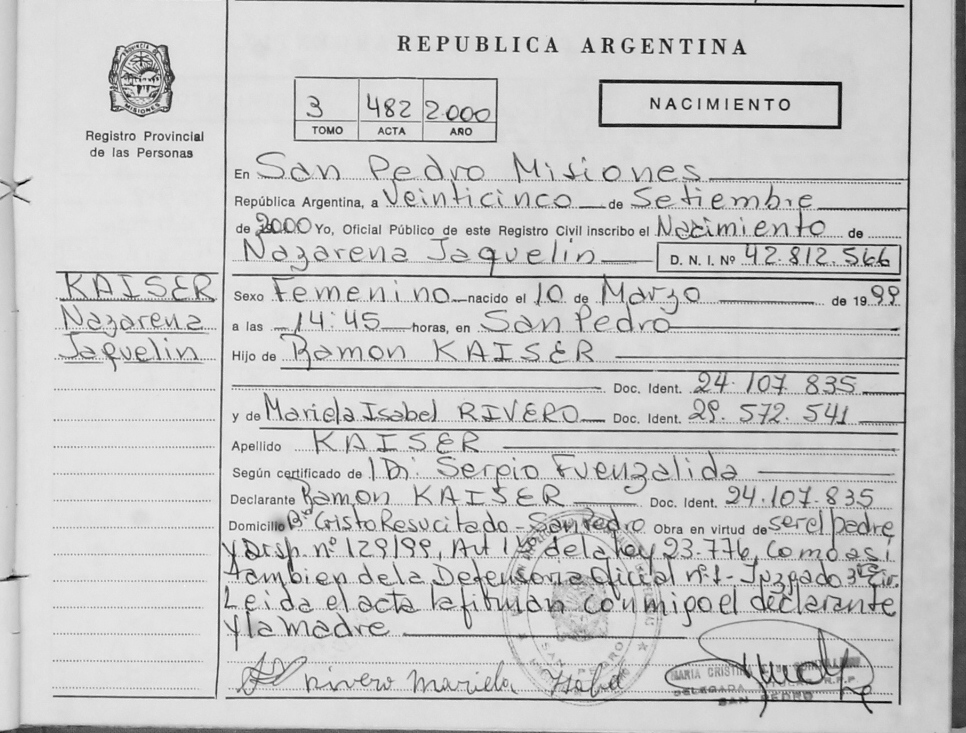 REPUBLICA ARGENTINA
PROVINCIA DE MISIONES
Registro Provincial
de las Personas
3 482 2.000
TOMO ACTA AÑO
NACIMIENTO
En San Pedro Misiones
República Argentina, a Veinticinco de Setiembre
de 2000 Yo, Oficial Público de este Registro Civil inscribo el Nacimiento de
Nazarena Jaquelin D. N. I. Nº 42.812.566
KAISER
Nazarena
Jaquelin
Sexo Femenino nacido el 10 de Marzo de 1999
a las 14:45 horas, en San Pedro
Hijo de Ramon KAISER
Doc. Ident. 24.107.835
y de Mariela Isabel RIVERO Doc. Ident. 29.572.541
Apellido KAISER
Según certificado de Dr: Sergio Fuenzalida
Declarante Ramon KAISER Doc. Ident. 24.107.835
Domicilio Bº Cristo Resucitado - San Pedro Obra en virtud de ser el padre
y Disp. nº 129/99, Art de la ley 23.776, como asi
tambien de la Defensoria Oficial nº 1 - Juzgado
Leida el acta la firman conmigo el declarante
y la madre
rivero mariela Isabel
MARIA CRISTINA
DELEGADA R.P.P.
SAN PEDRO